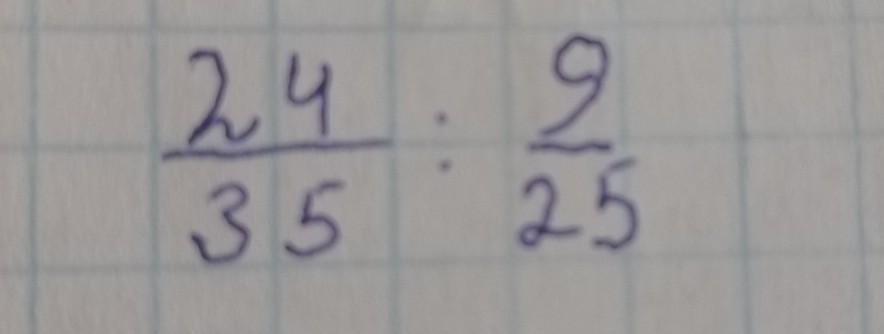 24/35 : 9/25